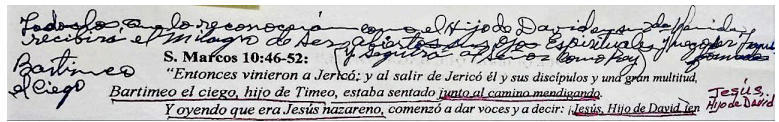 Todos los que lo reconocerán como el Hijo de David
recibirá el Milagro de Ser abiertos sus ojos Espirituales
y seguirá al
S. Marcos 10:46-52:
Bartimeo
el Ciego
“Entonces vinieron a Jericó; y al salir de Jericó él y sus discípulos y una gran multitud,
Bartimeo el ciego, hijo de Timeo, estaba sentado junto al camino mendigando.
Y oyendo que era Jesús nazareno, comenzó a dar voces y a decir: ¡Jesús, Hijo de David, ten
Jesús.
Hijo de David